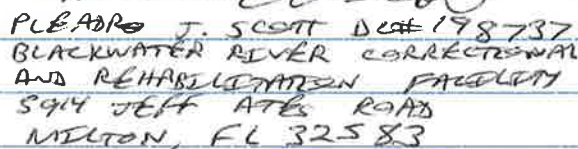 PLEADRO J. SCOTT DC# 198737
BLACKWATER RIVER CORRECTIONAL
AND REHABILITATION FACILITY
5914 JEFF ATES ROAD
MILTON, FL 32583